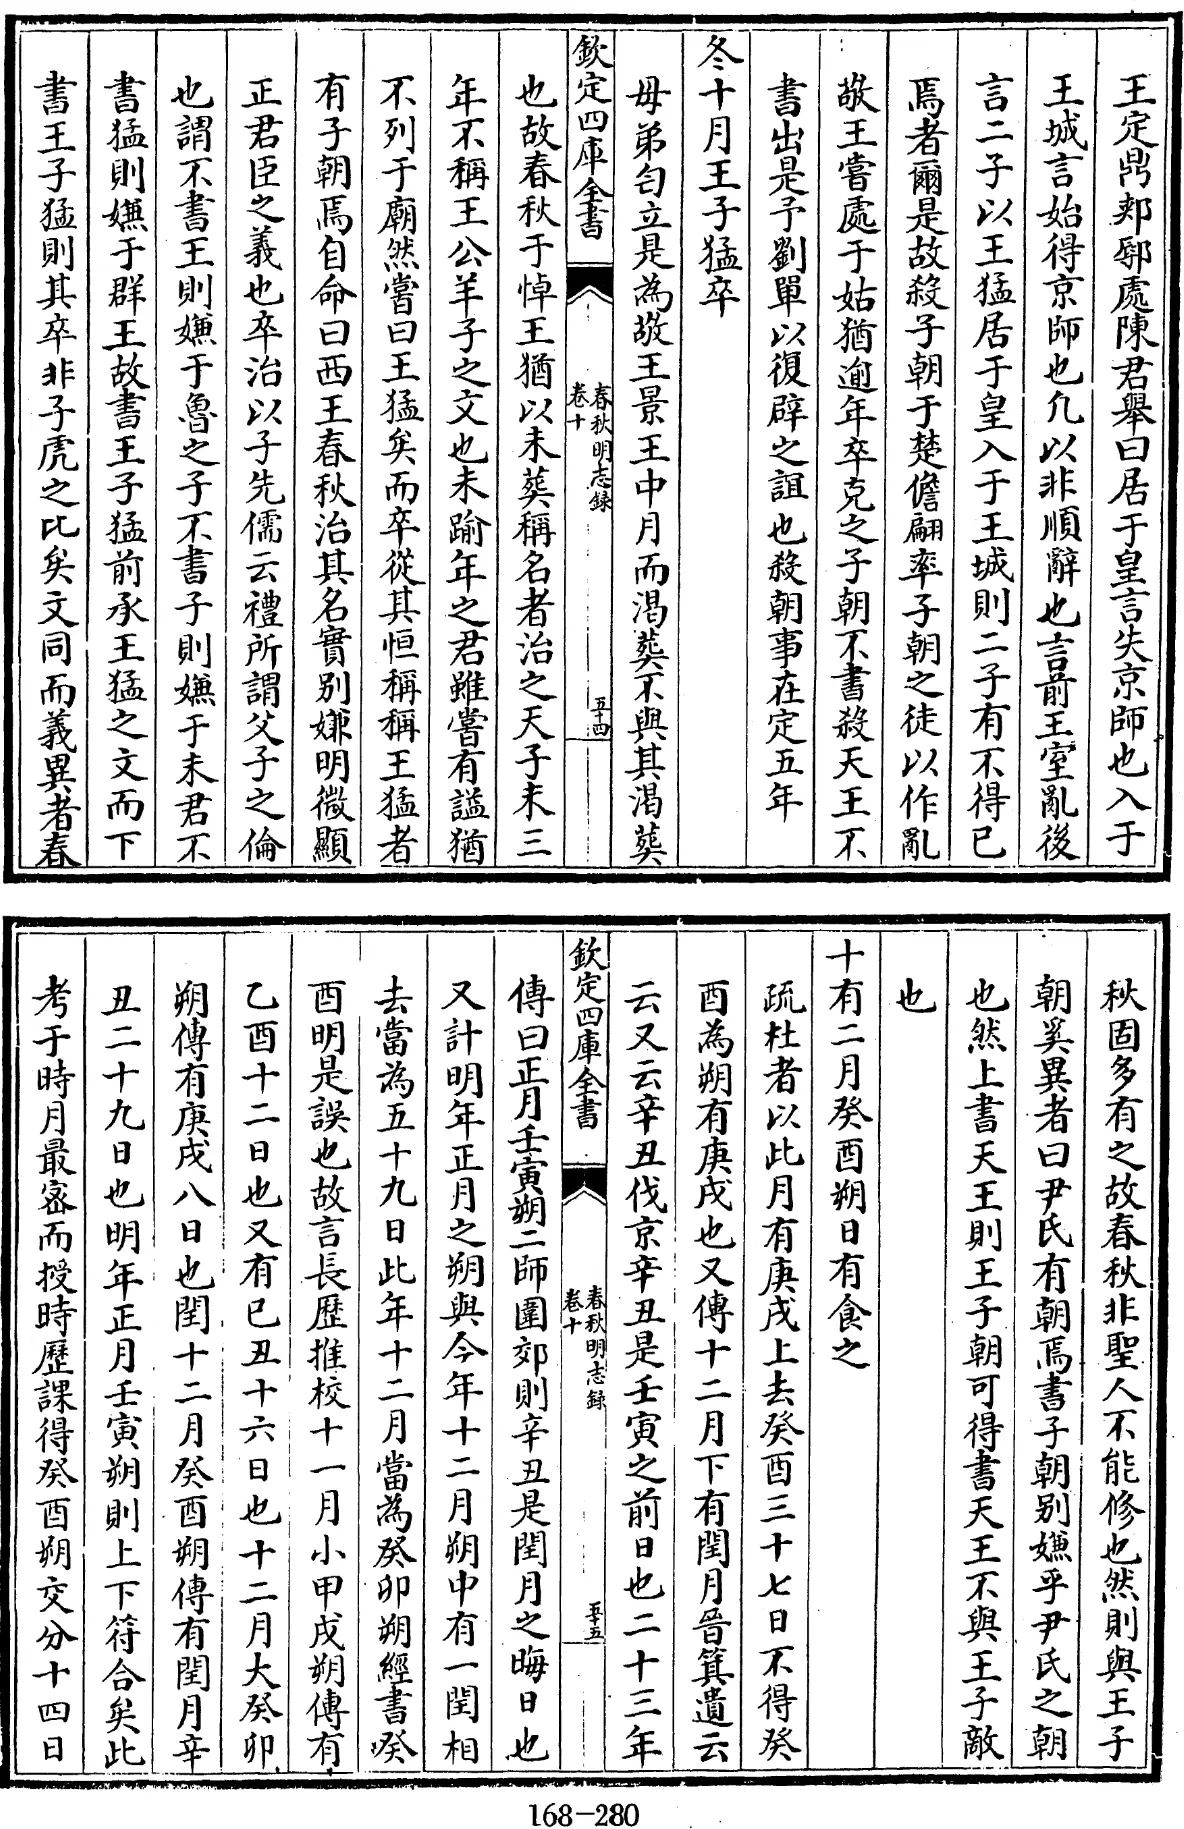 王定鼎郟鄏處陳君舉曰居于皇言失京師也入于
王城言始得京師也凡以非順辭也言前王室亂後
言二子以王猛居于皇入于王城則二子有不得已
焉者爾是故殺子朝于楚儋翩率子朝之徒以作亂
敬王嘗處于姑猶逾年卒克之子朝不書殺天王不
書出是予劉單以復辟之誼也殺朝事在定五年
冬十月王子猛卒
毋弟匄立是為敬王景王中月而渴葬不與其渴葬
欽定四庫全書
春秋明志録
卷十
五十四
也故春秋于悼王猶以未葬稱名者治之天子未三
年不稱王公羊子之文也未踰年之君雖嘗有謚猶
不列于廟然嘗曰王猛矣而卒從其恒稱稱王猛者
有子朝焉自命曰西王春秋治其名實别嫌明微顯
正君臣之義也卒治以子先儒云禮所謂父子之倫
也謂不書王則嫌于魯之子不書子則嫌于未君不
書猛則嫌于群王故書王子猛前承王猛之文而下
書王子猛則其卒非子虎之比矣文同而義異者春
秋固多有之故春秋非聖人不能修也然則與王子
朝奚異者曰尹氏有朝焉書子朝别嫌乎尹氏之朝
也然上書天王則王子朝可得書天王不與王子敵
也
十有二月癸酉朔日有食之
疏杜者以此月有庚戌上去癸酉三十七日不得癸
酉為朔有庚戌也又傳十二月下有閏月晉箕遺云
云又云辛丑伐京辛丑是壬寅之前日也二十三年
欽定四庫全書
春秋明志録
卷十
五十五
傳曰正月壬寅朔二師圍郊則辛丑是閏月之晦日也
又計明年正月之朔與今年十二月朔中有一閏相
去當為五十九日此年十二月當為癸卯朔經書癸
酉明是誤也故言長歷推校十一月小甲戌朔傳有
乙酉十二日也又有已丑十六日也十二月大癸卯
朔傳有庚戌八日也閏十二月癸酉朔傳有閏月辛
丑二十九日也明年正月壬寅朔則上下符合矣此
考于時月最宻而授時歷課得癸酉朔交分十四日
168-280